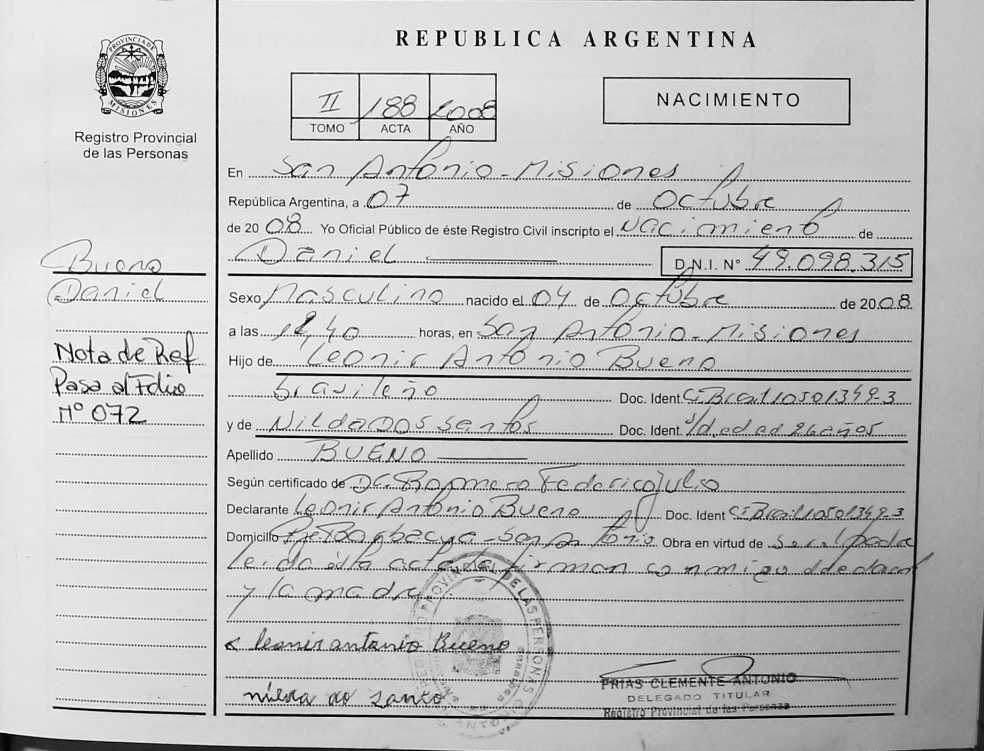 PROVINCIA DE
MISIONES
Registro Provincial
de las Personas
REPUBLICA ARGENTINA
II 188 2008
TOMO ACTA AÑO
NACIMIENTO
En San Antonio - Misiones
República Argentina, a 07 de Octubre
de 2008 Yo Oficial Público de éste Registro Civil inscripto el Nacimiento de
Daniel D.N.I. N° 49.098.315
Sexo Masculino nacido el 04 de Octubre de 2008
a las 12,40 horas, en San Antonio - Misiones
Hijo de Leonir Antonio Bueno
brasileño Doc. Ident. CI Brasil 10501349-3
y de Nilda Dos Santos Doc. Ident. edad 26 años
Apellido BUENO
Según certificado de Dr. Romero Federico Julio
Declarante Leonir Antonio Bueno Doc. Ident CI Brasil 10501349-3
Domicilio San Antonio Obra en virtud de ser el padre
leida esta acta la firman conmigo
y la madre
x leonir antonio Bueno
santo
PROVINCIAL DE LAS PERSONAS
FRIAS CLEMENTE ANTONIO
DELEGADO TITULAR
Registro Provincial de las Personas
Bueno
Daniel
Nota de Ref
Pasa al Folio
N° 072